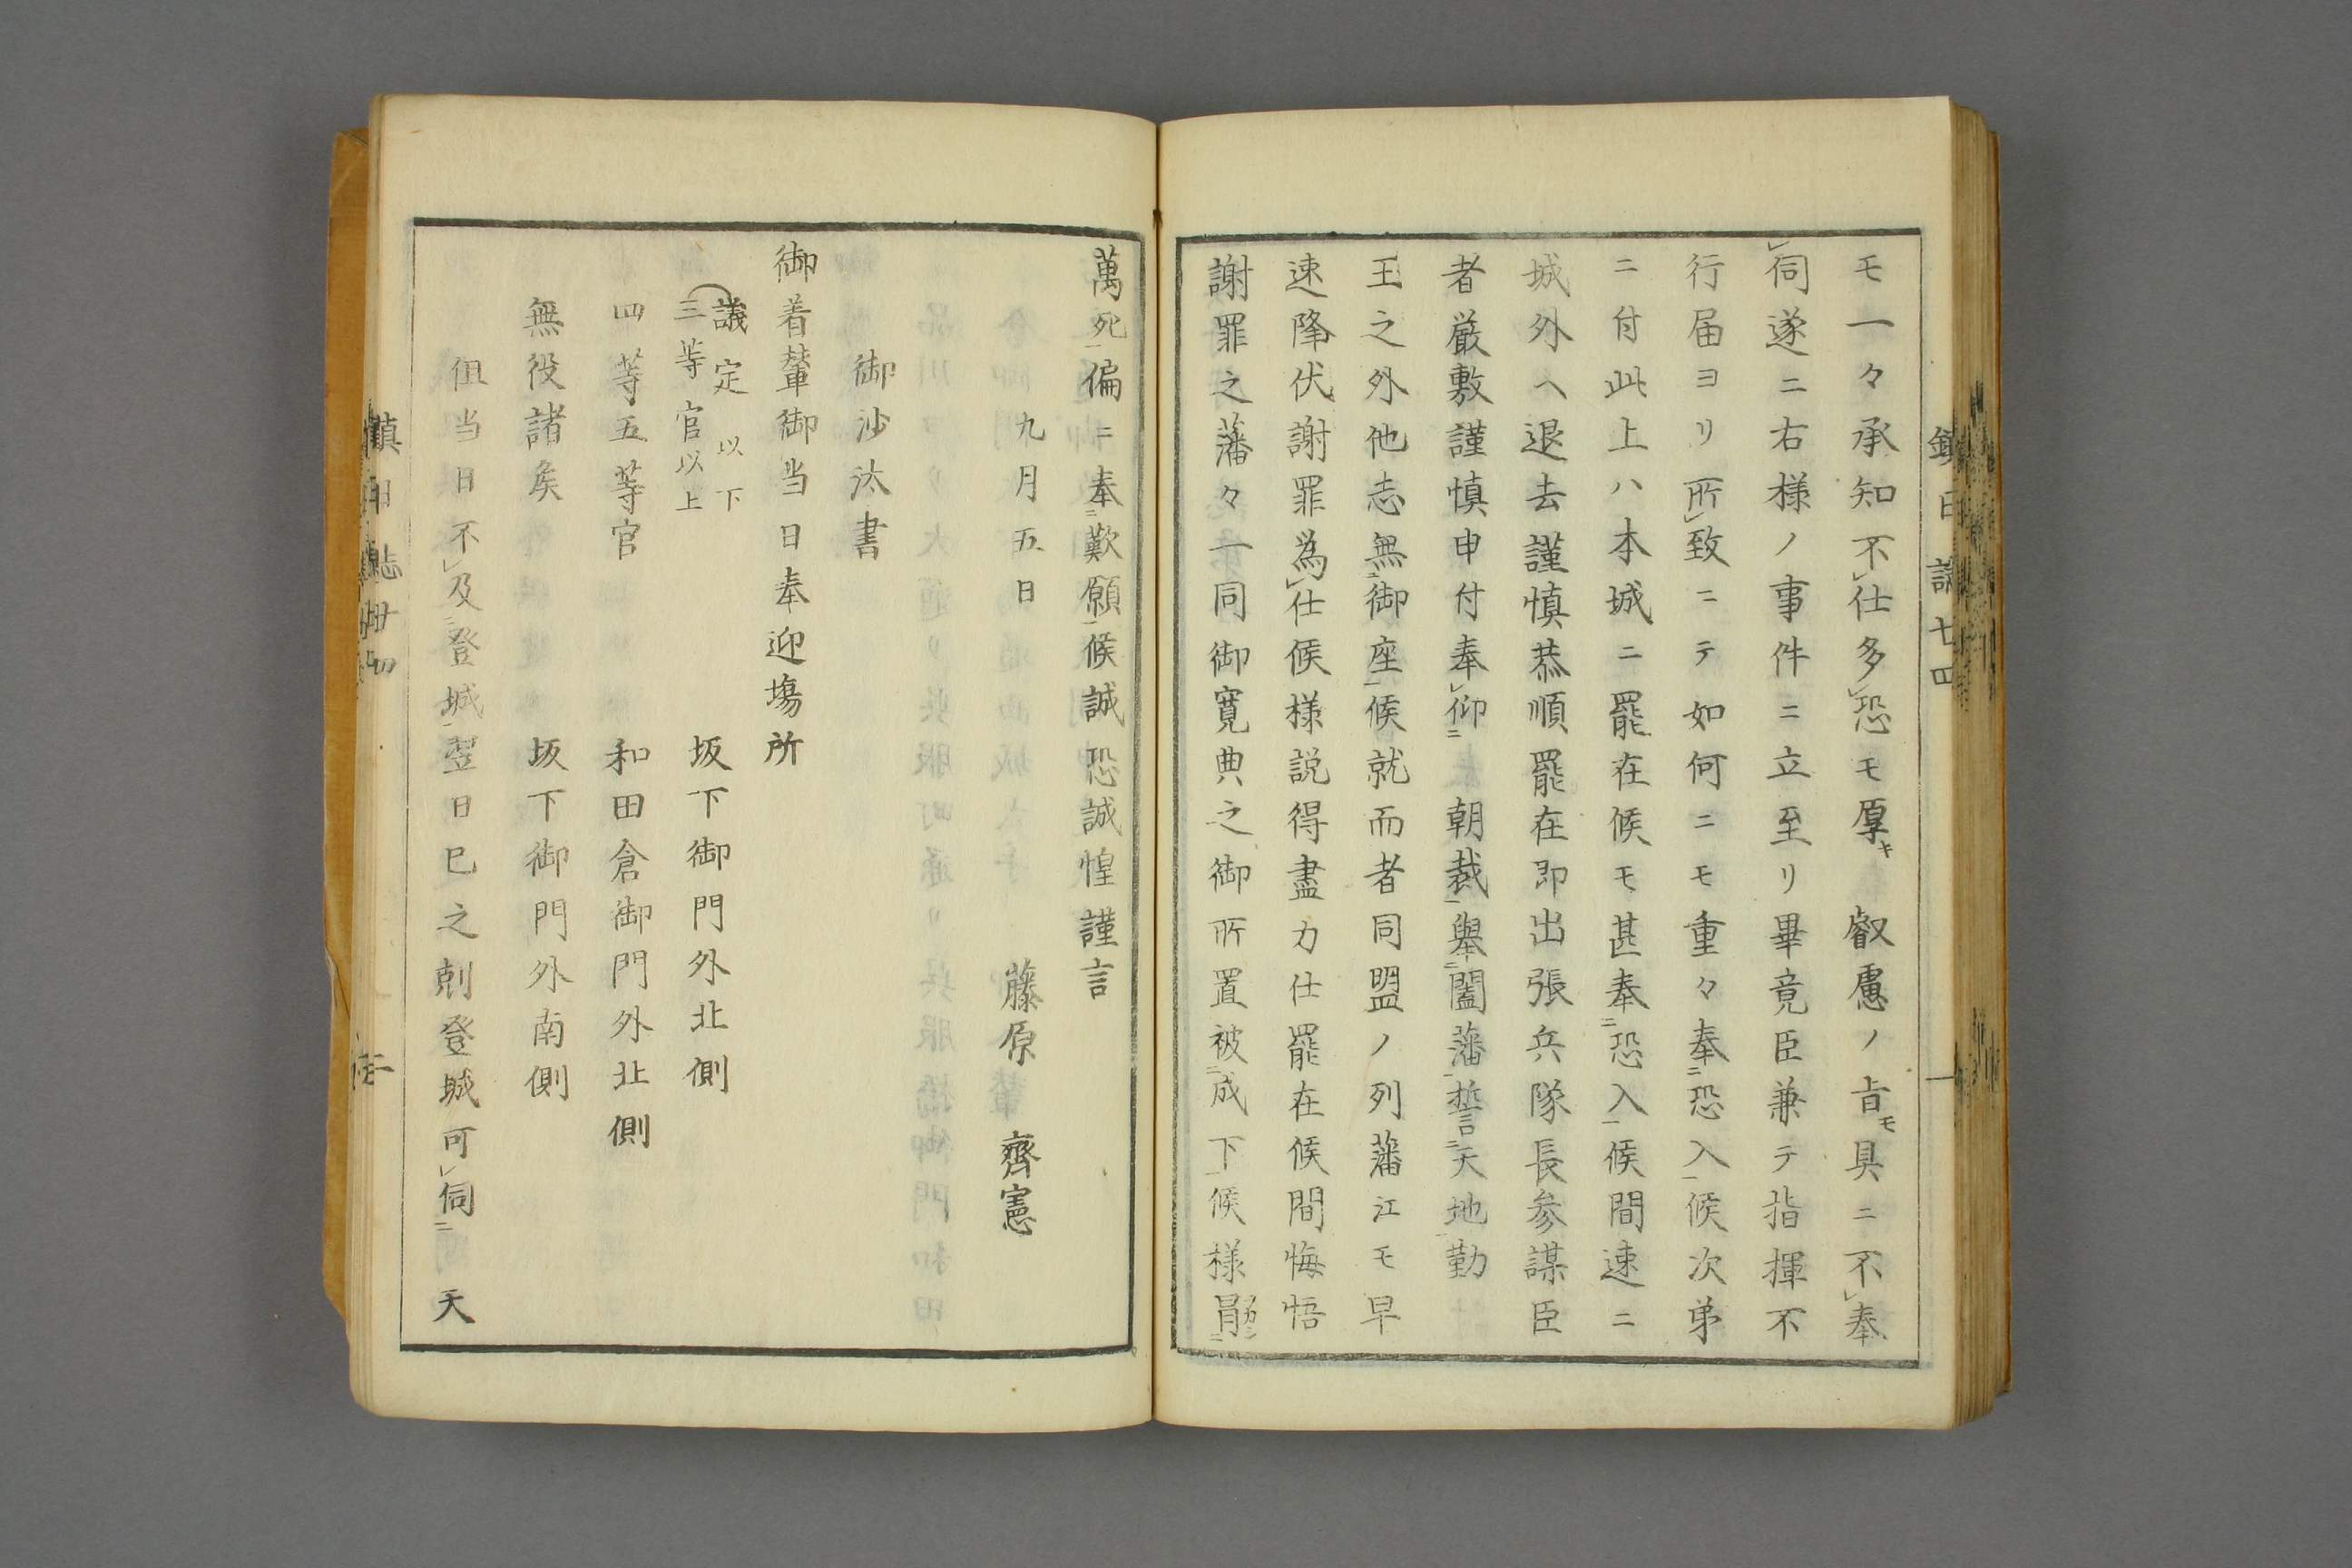 モ一々承知不レ仕多レ恐モ厚キ 叡慮ノ旨モ具ニ不レ奉
レ伺遂ニ右様ノ事件ニ立至リ畢竟臣兼テ指揮不
行届ヨリ所レ致ニテ如何ニモ重々奉二恐入一候次第
ニ付此上ハ本城ニ罷在候モ甚奉二恐入一候間速ニ
城外ヘ退去謹慎恭順罷在即出張兵隊長参謀臣
者厳敷謹慎申付奉レ仰二 朝裁一舉二闔藩一誓二天地一勤
王之外他志無二御座一候就而者同盟ノ列藩江モ早
速降伏謝罪為レ仕候様説得盡力仕罷在候間悔悟
謝罪之藩々一同御寛典之御所置被二成下一候様冐二
萬死一偏ニ奉二歎願一候誠恐誠惶謹言
九月五日
藤原 齊憲
御沙汰書
御着輦御当日奉迎塲所
議定 以下
三等官以上
坂下御門外北側
四等五等官 和田倉御門外北側
無役諸矦 坂下御門外南側
但当日不レ及二登城一翌日巳之刻登城可レ伺二 天
鎮日誌七四
一